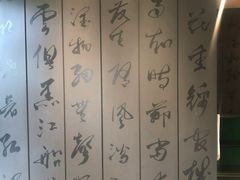 花重錦官城
雨知時節當
發生隨風潛
潤物細無聲
雲俱黑江船
看紅